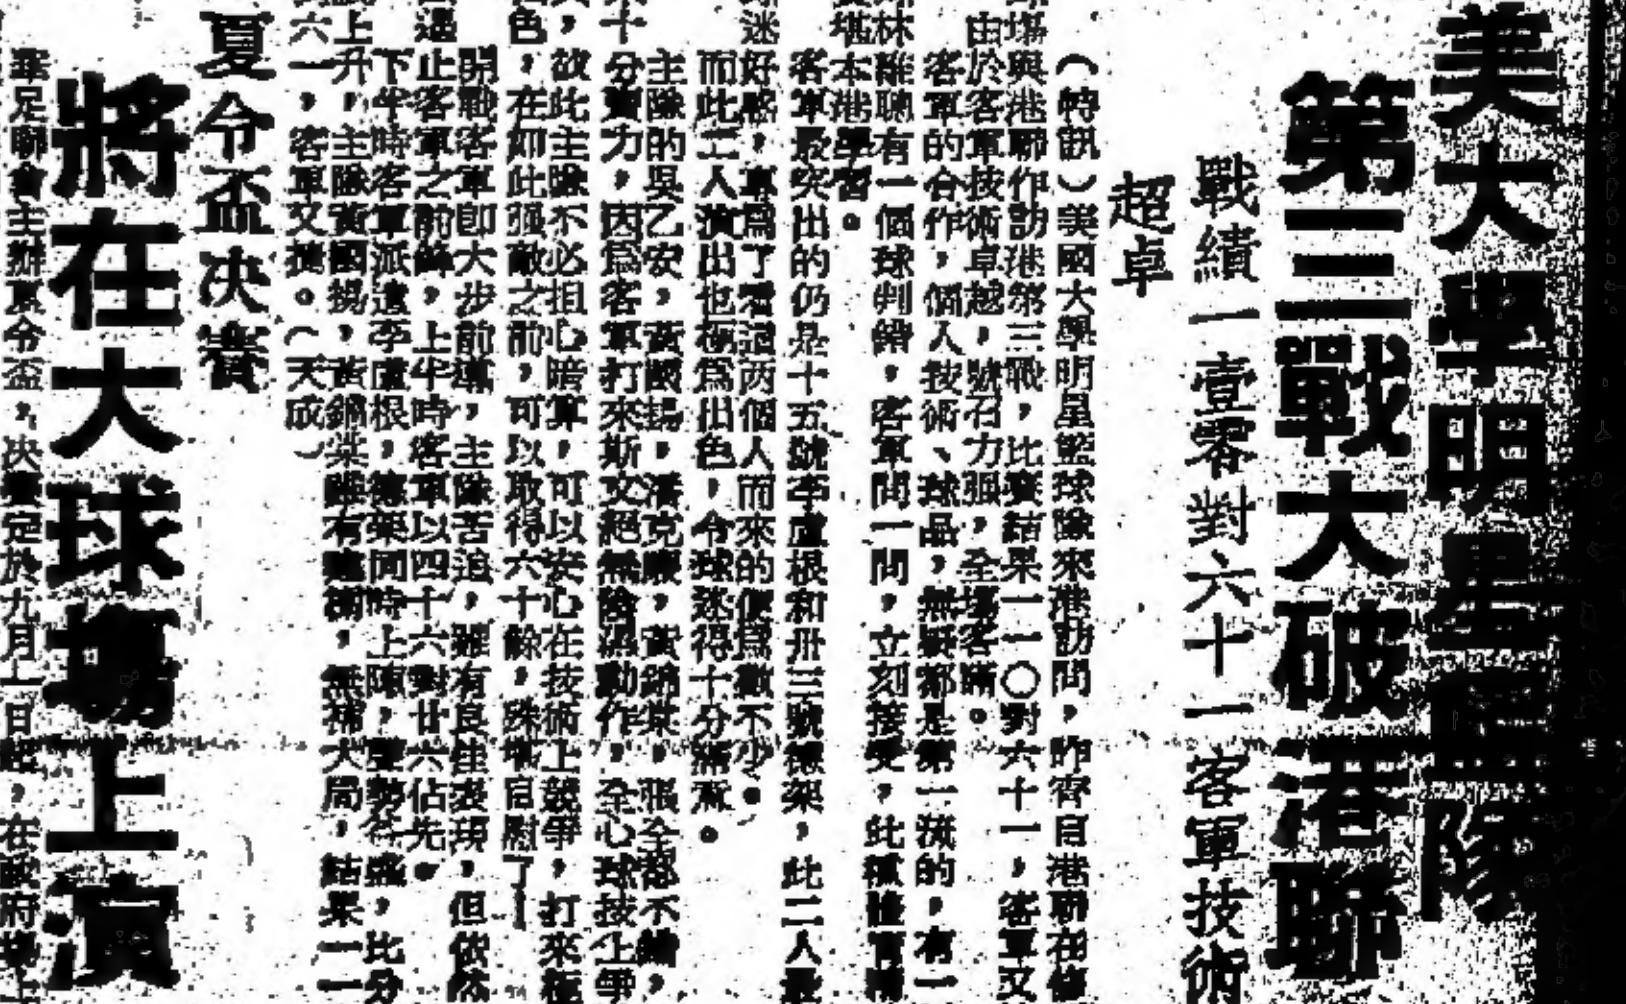 美大學明星隊
第三戰大破港聯
戰績一壹零對六十一客軍技術
超卓
（特訊）美國大學明星籃球隊來港訪問，昨齊自港聯在修
塲與港聯作訪港第三戰，比賽結果一一〇對六十一，客軍又
由於客軍技術卓越，號召力强，全塲客滿。
客軍的合作，個人技術、球品，無疑都是第一流的，有一
林雅聰有一個球判錯，客軍問一問，立刻接受，此種
堪本港學習。
客軍最突出的仍是十五號李盧根和卅三號德架，此二人最
迷好感，專爲了看這兩個人而來的便爲數不少。
而此二人演出也極爲出色，令球迷得十分滿意。
主隊的吳乙安，黃國揚，潘克廉，黃錦棠，張全都不錯，
十分賣力，因爲客軍打來斯文絕無陰濕動作，全心球技上爭
，故此主隊不必担心暗算，可以安心在技術上競爭，打來極
色，在如此强敵之前，可以取得六十餘，殊堪自慰了
開戰客軍即大步前進，主隊苦追，雖有良佳表現，但依然
遏止客軍之前鋒，上半時客軍以四十六對廿六佔先。
下半時客軍派遣李盧根，德架同時上陣，聲勢，比分
上升，主隊黃國揚，黃錦棠雖有建樹，無補大局，結果一一
六一，客軍又獲。（天成）
夏令盃決賽
將在大球塲上演
華足聯會主辦夏令盃，決賽定於九月十一日起，在政府塲上